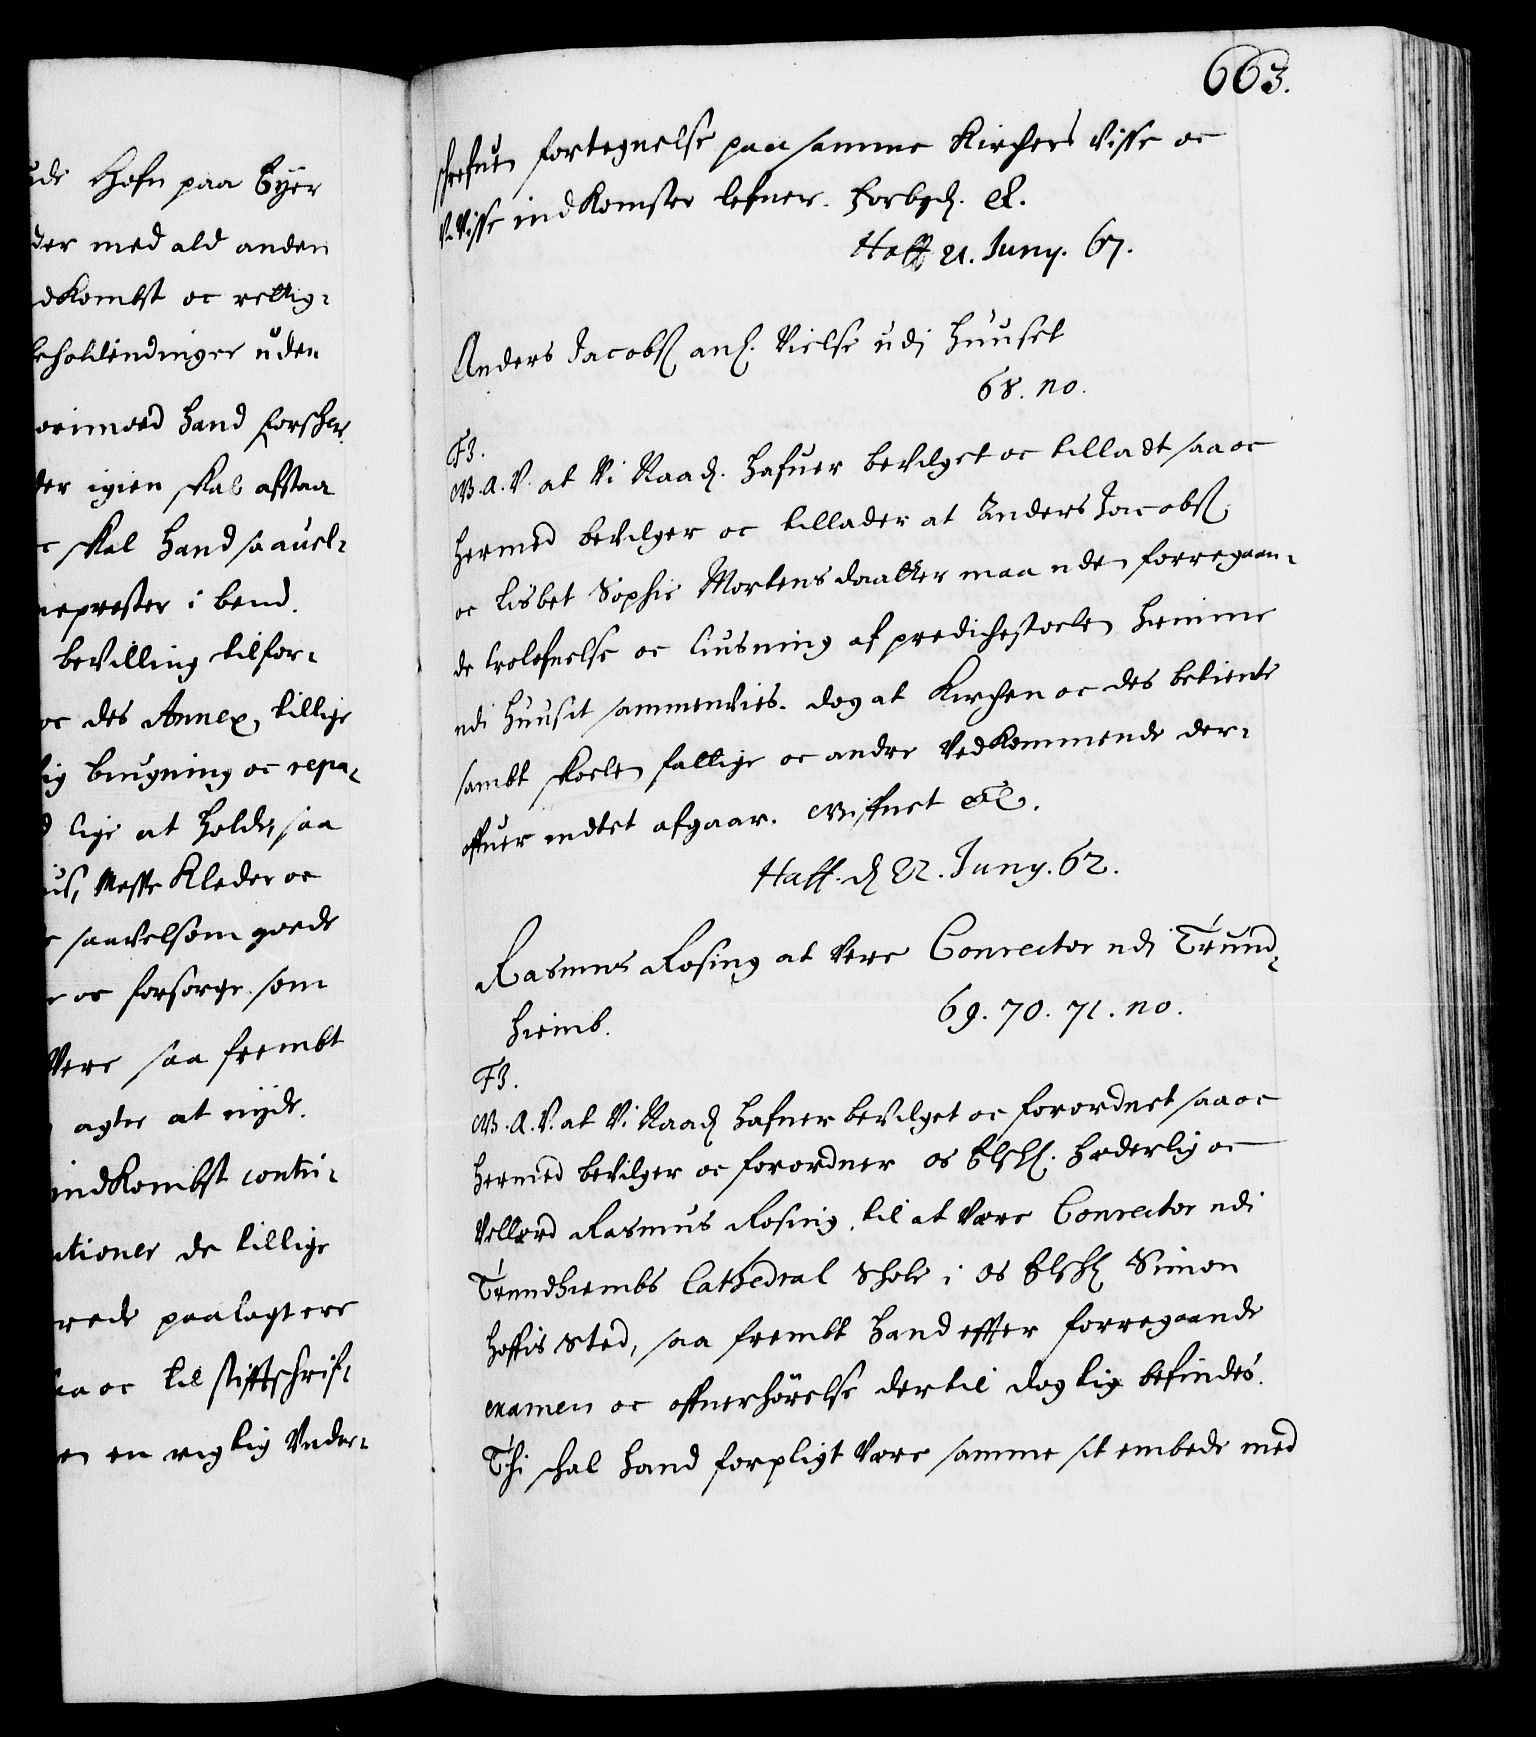 ude Hofn paa Eyer
der med ald anden
dKombst oc rettig-
beholdindinger uden
orimod hand forschr.
der igien skal afstaa
skal hand saauel-
neprester i bend.
bevilling tilfor-
oc des Annex, tillige
lig bygning oc repa-
lige at holde, saa
us, Messe Kleder oc
saavelsom goede
oc forsorge som
Vere saa frembt
agter at nyde.
indKombst contri-
utioner de tillige
rede paalagt ere
saa oc til stifftschrif-
en rigtig Under-
663.
schrefuen fortegnelse paa samme Kirchers Visse oc
UVisse indkomster lefuer. Forbydendis &.
Haff 21. Juny. 67.
Anders Jacobsen anl. Vielse udi Huuset
68. no.
F3.
G. A. V. at Vi Naadigst hafuer bevilget oc tilladt saa oc
hermed bevilger oc tillader at Anders Jacobsen
oc Lisbet Sophie Mortens daatter maa uden forregaaen-
de trolofuelse oc liusning af predichestoelen hiemme
udi Huuset sammenvies. dog at Kirchen oc des betiente
sambt skolen fattige oc andre Vedkommende der-
ofuer indtet afgaar. Giffuet &c.
Haff. d 22. Juny. 62.
Rasmus Rosing at Vere Conrector udi Trund-
hiemb.
69. 70. 71. no.
F3.
G. A. V. at Vi Naadigst hafuer bevilget oc forordnet saa oc
hermed bevilger oc forordner os Elskl. hæderlig oc
Vellærd Rasmus Rosing, til at Vere Conrector udi
Trundhiembs Cathedral Schole i Os Elskl Simon
Hoffis Sted, saa frembt hand effter forregaaende
examen oc ofuerhörelse dertil dygtig befindes.
Thi schal hand forpligt Vere samme sit embede med